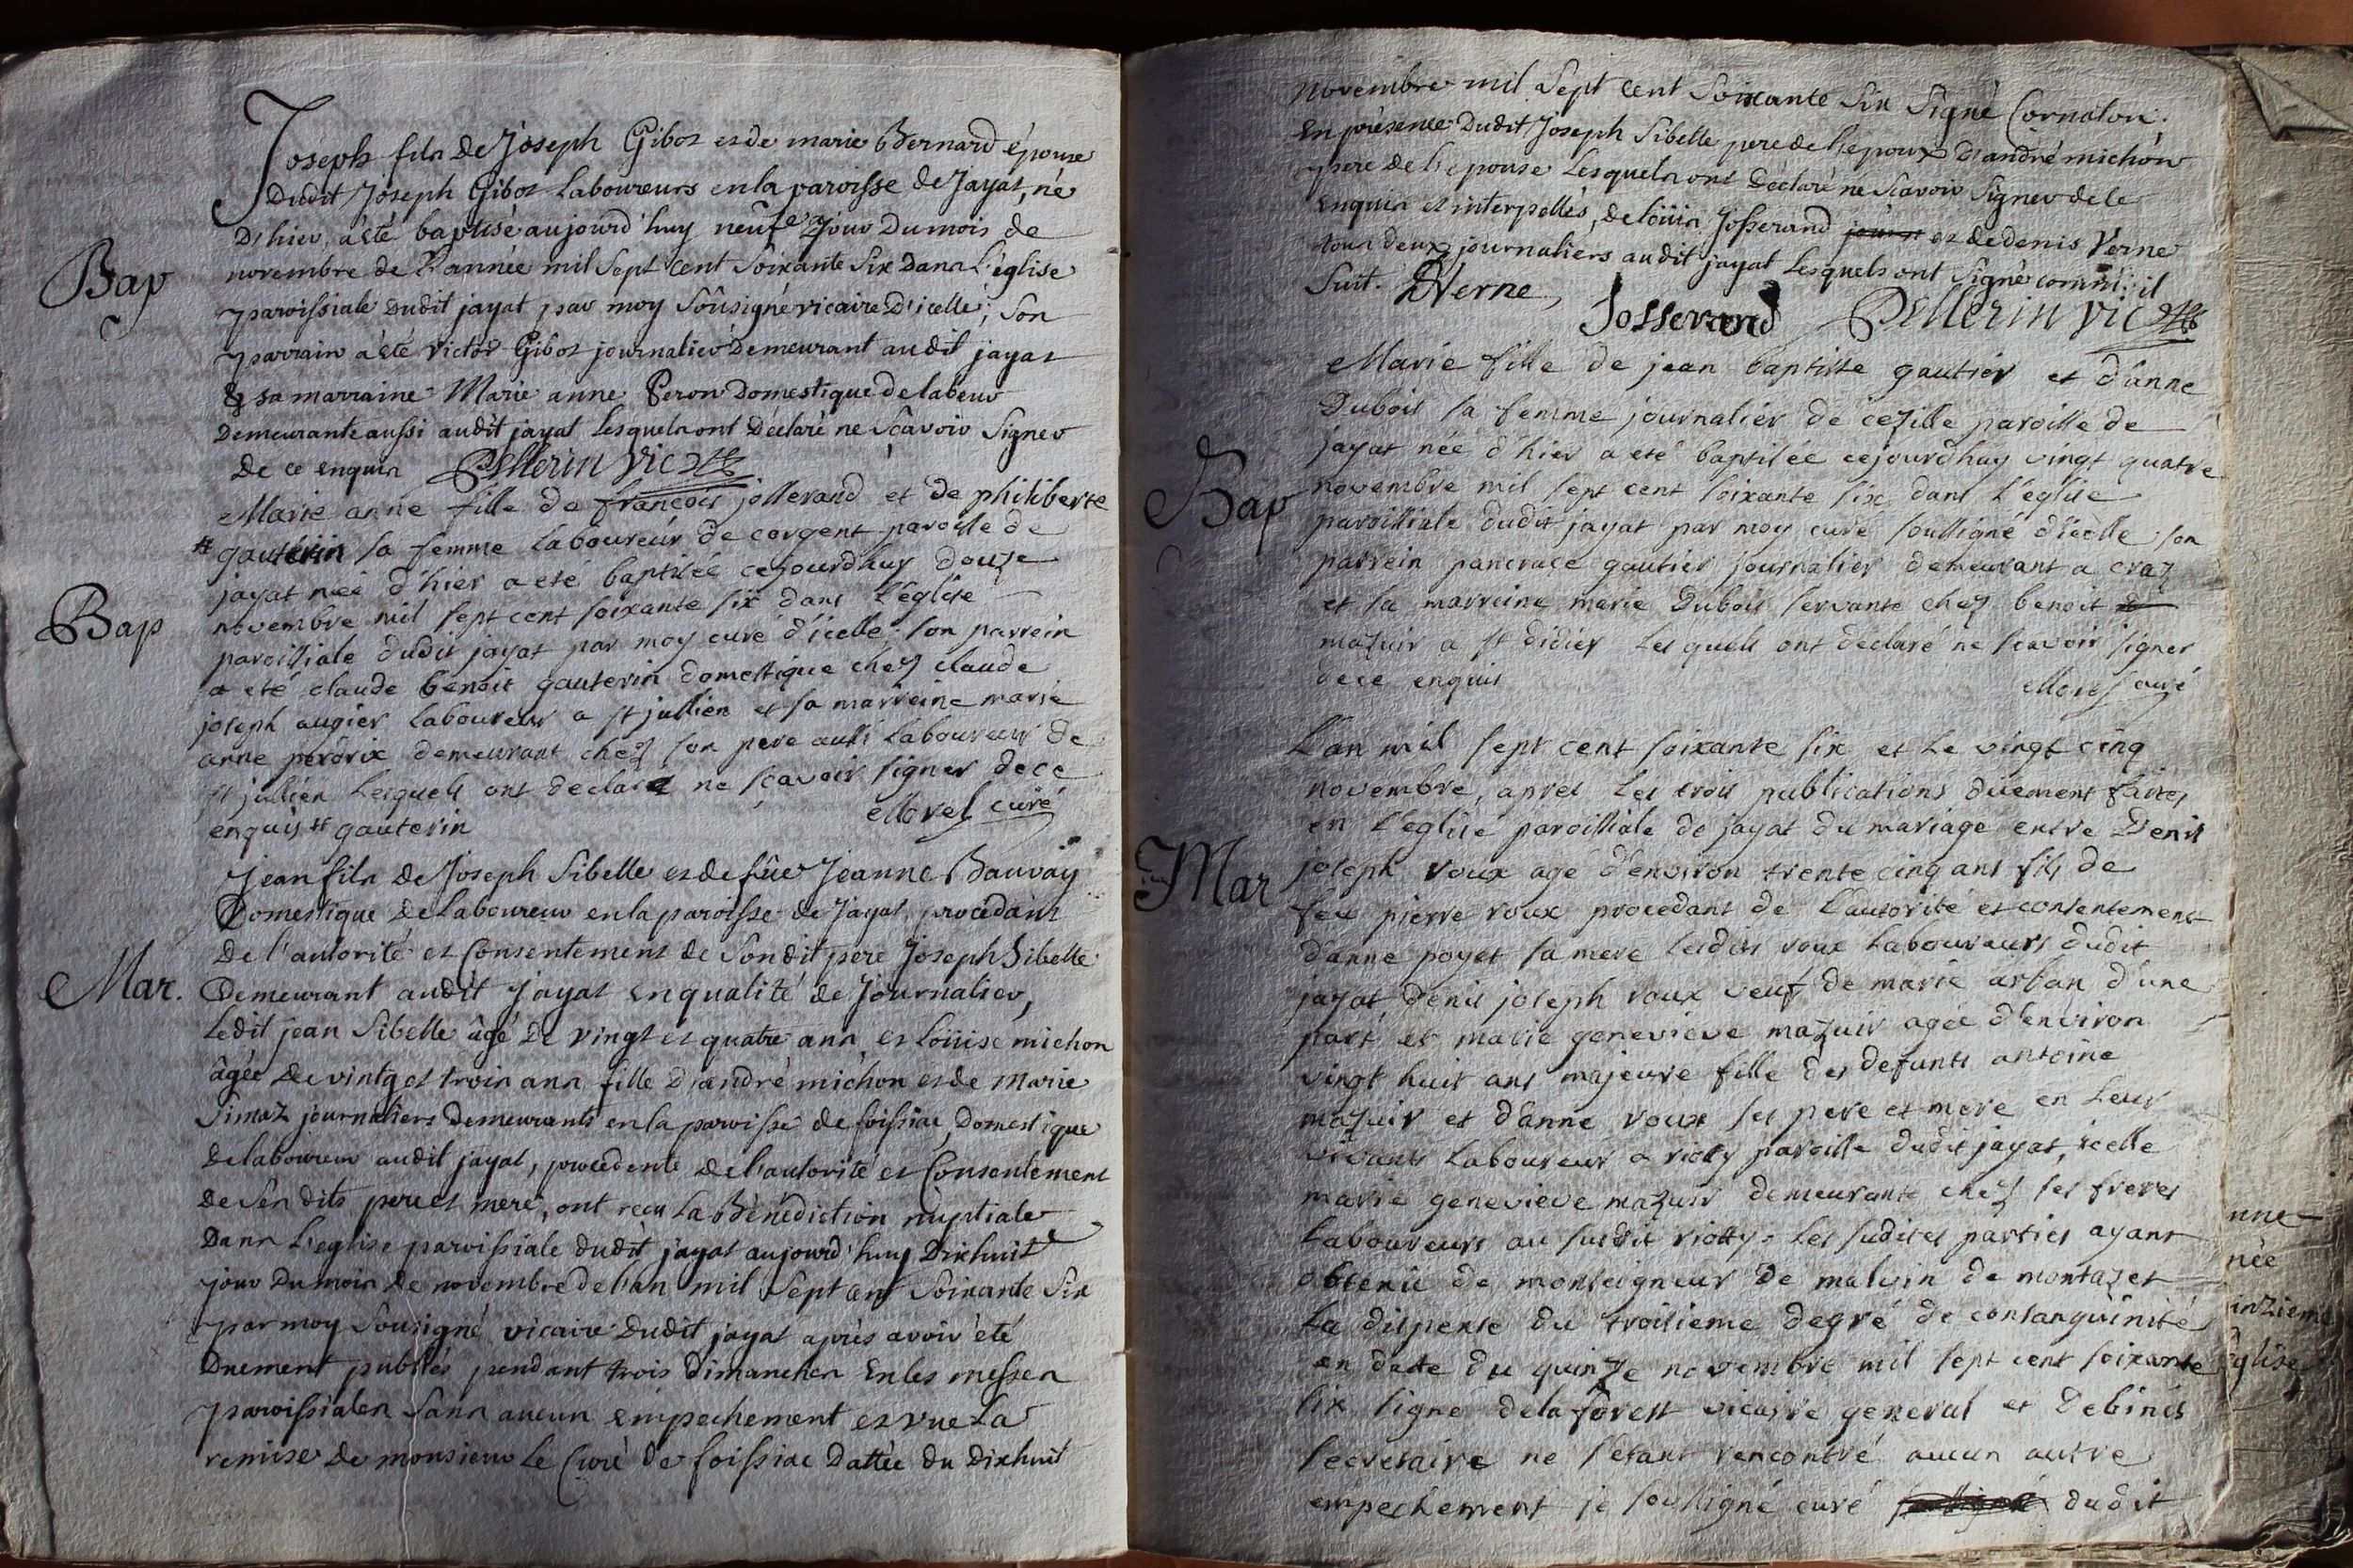 Joseph fils de Joseph Gibot et de marie Bernard épouse
Dudit Joseph Gibot Laboureurs en la paroisse de Jayat, né
D'hier, a été baptisé aujourd'huy neuf jour Du mois de
Bap
novembre de L'année mil Sept cent Soixante Six Dans l'église
paroissiale Dudit jayat par moy Soûsigné vicaire D'icelle; Son
parrain a été Victor Gibot journalier Demeurant audit jayat
& sa marraine Marie anne Peron Domestique de labeur
Demeurante aussi audit jayat Lesquels ont Déclaré ne Sçavoir Signer
De ce enquis Pellerin Vic
Marie anne fille de francois josserand et de philiberte
# gauterin sa femme Laboureur de corgent paroisse de
jayat née d'hier a eté baptisée cejourdhuy douze
Bap
novembre mil sept cent soixante six dans L'église
paroissiale dudit jayat par moy curé d'icelle; son parrein
a eté claude benoit gauterin domestique chez claude
joseph augier Laboureur a st jullien et sa marreine marie
anne perdrix demeurant chez son pere aussi Laboureur de
st jullien Lesquels ont déclaré ne sçavoir signer de ce
enquis # gauterin Morel curé
Jean fils de Joseph Sibelle et de fûe Jeanne Bauvay
Domestique de Laboureur en la paroisse de Jayat, procédant
De l'autorité et Consentement de Son dit pere Joseph Sibelle
Mar.
Demeurant audit Jayat en qualité de Journalier,
Ledit jean Sibelle âgé De vingt et quatre ans, et Loüise michon
âgée de vintg et trois ans fille D'andré michon et de Marie
Simaz journaliers Demeurants en la paroisse de foissiac, Domestique
De laboureur audit jayat, procedente de l'autorité et Consentement
De Sendits pere et mere, ont reçu La Bénédiction nuptiale
Dans L'eglise paroissiale dudit jayat aujourd'huy Dixhuit
jour Du mois de novembre de l'an mil Sept cent Soixante Six
par moy Sousigné vicaire Dudit jayat après avoir été
Duement publiés pendant trois Dimanches En les messes
paroissiales Sans aucun empechement et vue La
remise de monsieur Le Curé de foissiac Dattée du Dixhuit
novembre mil Sept cent Soixante Six Signé Cornaton.
En présence Dudit Joseph Sibelle pere de l'epoux D'andré michon
pere de l'epouse Lesquels ont Déclaré ne Scavoir Signer de ce
enquis et interpellés, de loüis Josserand et de denis Verne
tous deux journaliers audit jayat Lesquels ont Signé comm'il
Suit. DVerne, Josserand Pellerin Vic
Marie fille de jean baptiste gautier et d'anne
Dubois sa femme journalier de cezille paroisse de
jayat née d'hier a eté baptisée cejourdhuy vingt quatre
Bap
novembre mil sept cent soixante six dans L'église
paroissiale dudit jayat par moy curé soussigné d'icelle son
parrein pancrace gautier journalier demeurant a craz
et sa marreine marie Dubois servante chez benoit
mazuir a st didier Lesquels ont déclaré ne sçavoir signer
de ce enquis Morel curé
L'an mil sept cent soixante six et Le vingt cinq
novembre, apres Les trois publications düement faites
en L'église paroissiale de jayat du mariage entre Denis
Mar
joseph roux agé d'environ trente cinq ans fils de
feu pierre roux procedant de L'autorité et consentement
d'anne poyet sa mere Lesdits roux Laboureurs dudit
jayat, denis joseph roux veuf de marie arban d'une
part, et marie genevieve mazuir agée d'environ
vingt huit ans majeure fille des defunts antoine
mazuir et d'anne roux ses pere et mere en Leur
vivants Laboureur a riotty paroisse dudit jayat, icelle
marie genevieve mazuir demeurante chez ses freres
Laboureurs au susdit riotty. Les sudites parties ayant
obtenu de monseigneur de malvin de montazet
La dispense du troisieme degré de consanguinité
en date du quinze novembre mil sept cent soixante
six signé delaforest vicaire general et Debinis
secretaire ne s'étant rencontré aucun autre
empechement je soussigné curé dudit
nne
née
inzieme
église